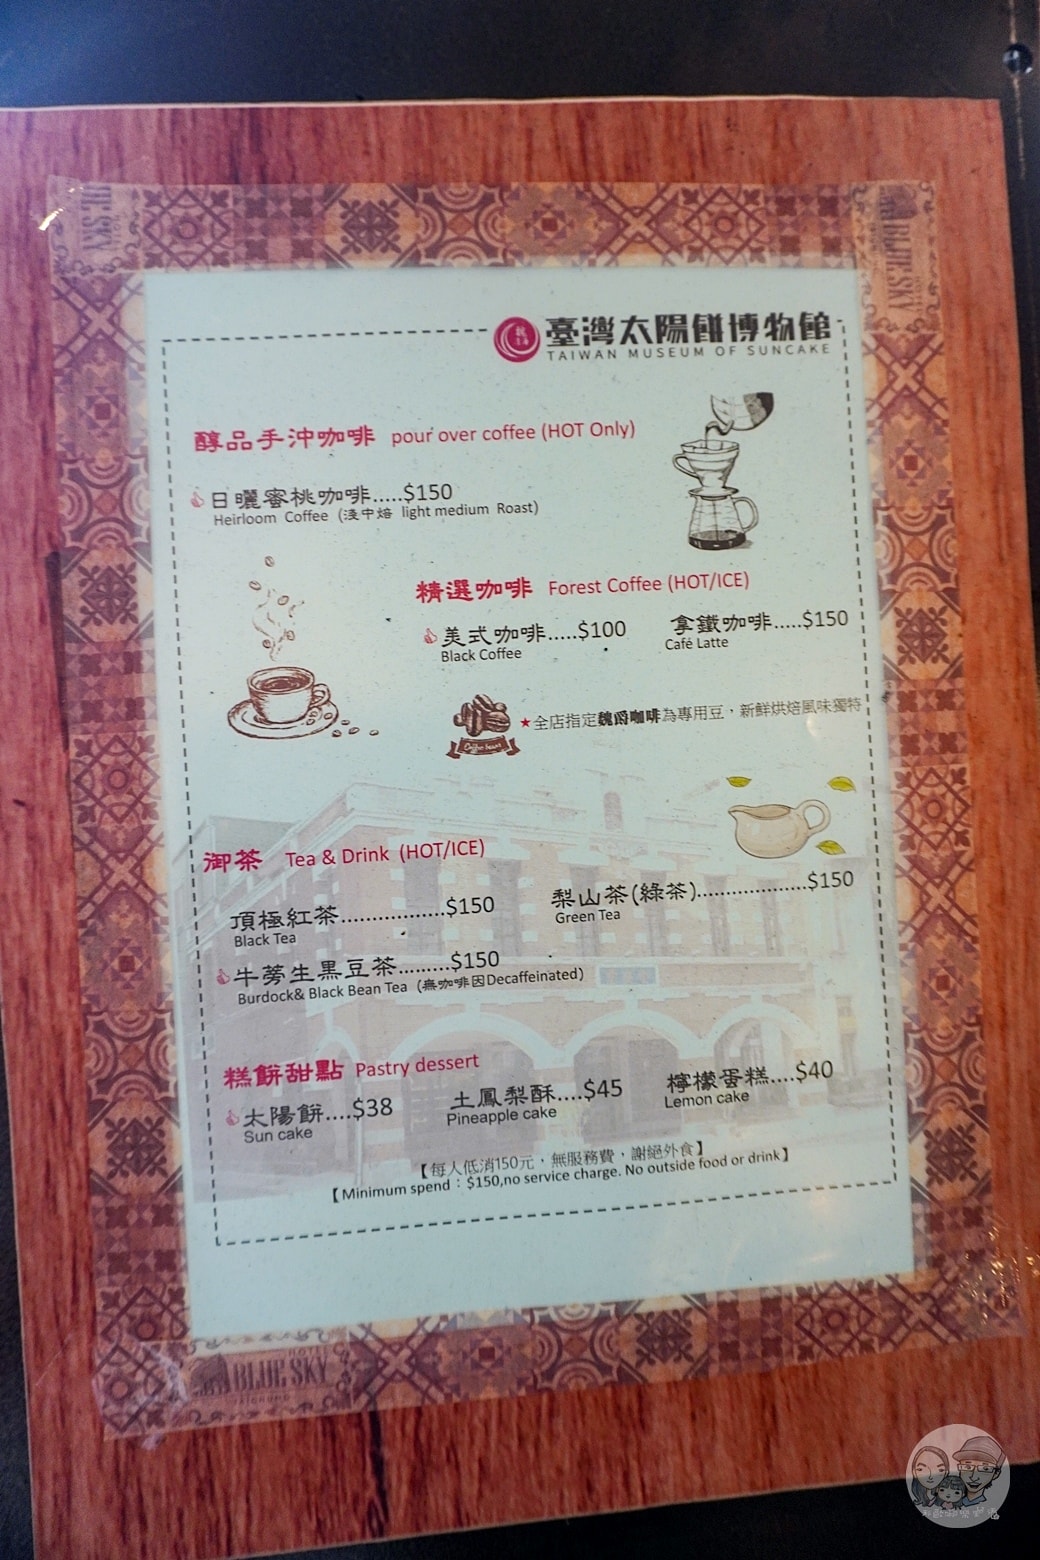 臺灣太陽餅博物館
TAIWAN MUSEUM OF SUNCAKE
醇品手沖咖啡 pour over coffee (HOT Only)
日曬蜜桃咖啡.....$150
Heirloom Coffee (淺中焙 light medium Roast)
精選咖啡 Forest Coffee (HOT/ICE)
美式咖啡.....$100 拿鐵咖啡.....$150
Black Coffee Café Latte
★全店指定魏爵咖啡為專用豆,新鮮烘焙風味獨特
御茶 Tea & Drink (HOT/ICE)
頂極紅茶..................$150 梨山茶(綠茶)...................$150
Black Tea Green Tea
牛蒡生黑豆茶.........$150
Burdock& Black Bean Tea (無咖啡因Decaffeinated)
糕餅甜點 Pastry dessert
太陽餅....$38 土鳳梨酥....$45 檸檬蛋糕....$40
Sun cake Pineapple cake Lemon cake
【每人低消150元,無服務費,謝絕外食】
【Minimum spend:$150,no service charge. No outside food or drink】
HOTEL
BLUE SKY
TAICHUNG
BLUE SKY